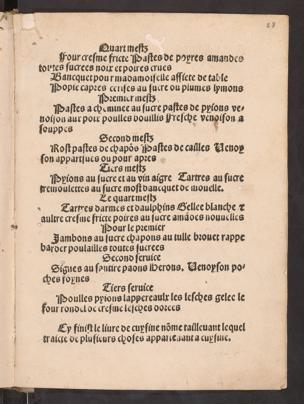 28
Quart mestz
Four cresme fricte Pastes de poyres amandes
tortes sucrees noix et poires crues
Bancquet pour madamoiselle assiete de table
Popie capres cerises au sucre ou plumes lymons
Premier mestz
Pastes a cheminee au sucre pastes de pyions ve-
noison aux poix poulles bouillis fresche venoison a
souppes
Second mestz
Rost pastes de chapōs Pastes de cailles Venoy
son
Tiers mestz
Pyions au sucre et au vin aigre Tartres au sucre
au sucre most bancquet de mouelle.
Le quart mestz
Tartres darmes et daulphins Gelle blanche &
aultre cresme fricte poires au sucre amādes nouuelles
Pour le premier
Jambons au sucre chapons au tulle
poulailles toutes sucrees
Second seruice
Signes au paons Herons. Venoyson po-
Tiers seruice
Poulles pyions lappereaulx les lesches gelee le
four rondel de cresme lesches dorees
Cy finist le liure de cuysine nōme tailleuant lequel
traicte de plusieurs choses appartenant a cuysine.